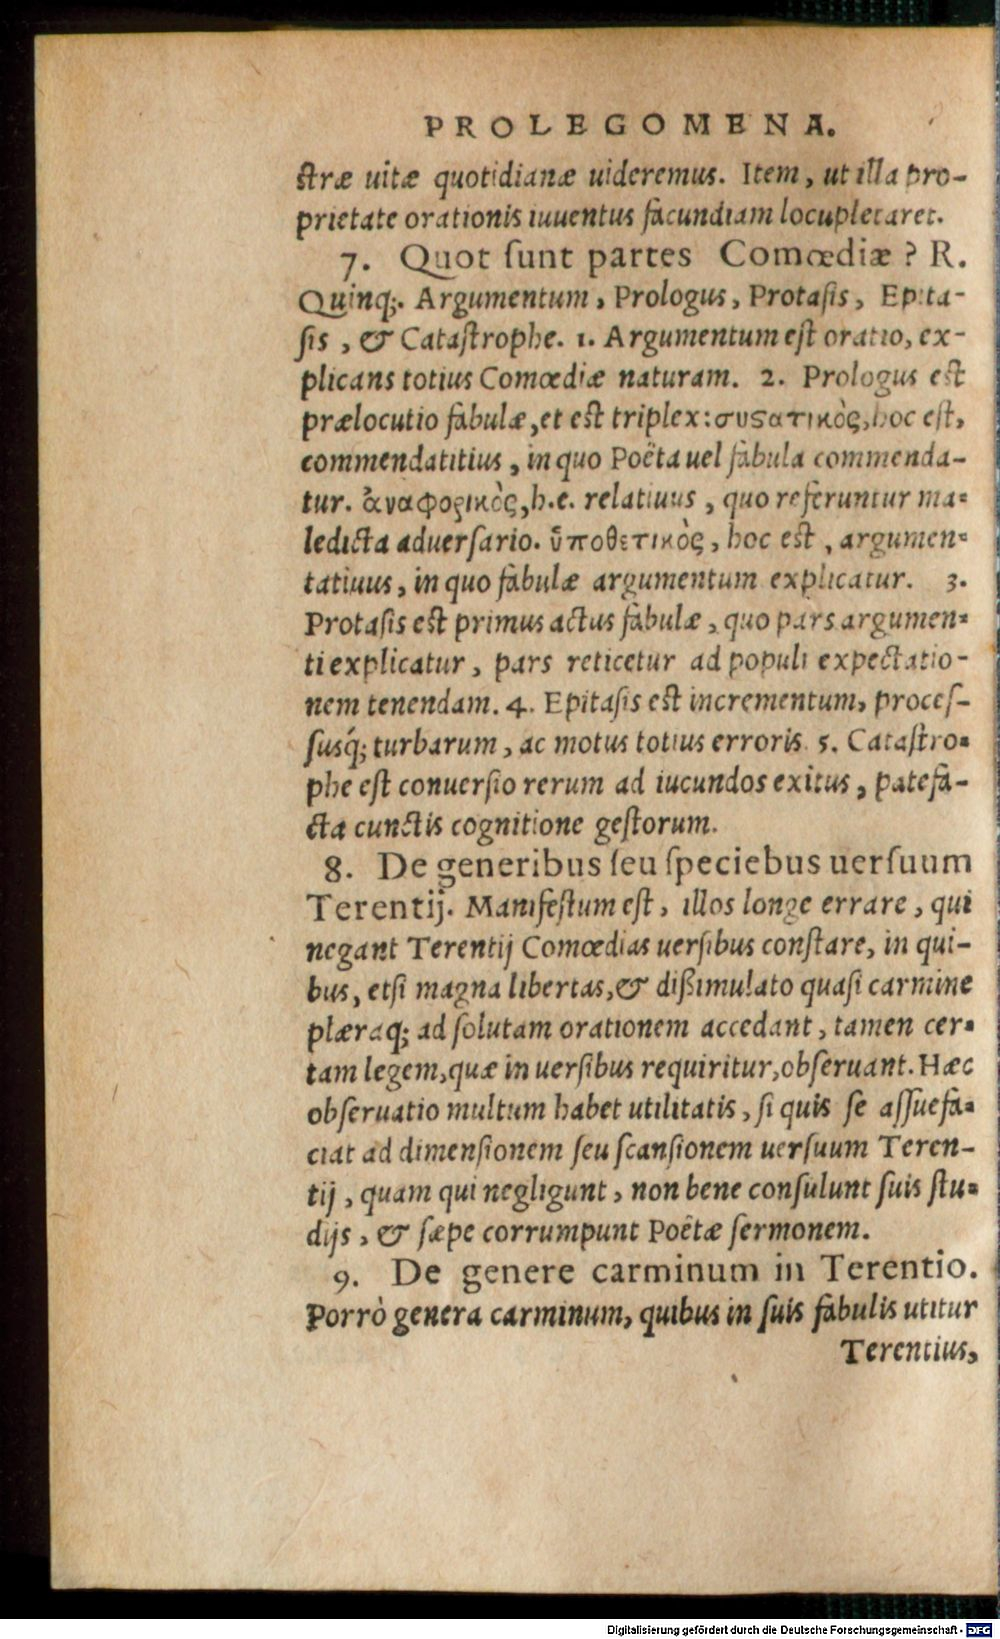 PROLEGOMENA.
stræ uitæ quotidianæ uideremus. Item, ut illa pro-
prietate orationis iuuentus facundiam locupletaret.
7. Quot ſunt partes Comœdiæ? R.
Quinq;. Argumentum, Prologus, Protaſis, Epita-
ſis, & Cataſtrophe. 1. Argumentum eſt oratio, ex-
plicans totius Comœdiæ naturam. 2. Prologus eſt
prælocutio fabulæ, et eſt triplex: συςατικὸς, hoc eſt,
commendatitius, in quo Poëta uel fabula commenda-
tur. ἀναφορικὸς, h.e. relatiuus, quo referuntur ma-
ledicta aduerſario. ὑποθετικὸς, hoc eſt, argumen-
tatiuus, in quo fabulæ argumentum explicatur. 3.
Protaſis eſt primus actus fabulæ, quo pars argumen-
ti explicatur, pars reticetur ad populi expectatio-
nem tenendam. 4. Epitaſis eſt incrementum, proceſ-
ſusq́; turbarum, ac motus totius erroris. 5. Cataſtro-
phe eſt conuerſio rerum ad iucundos exitus, patefa-
cta cunctis cognitione geſtorum.
8. De generibus ſeu ſpeciebus uerſuum
Terentij. Manifeſtum eſt, illos longe errare, qui
negant Terentij Comœdias uerſibus conſtare, in qui-
bus, etſi magna libertas, & dißimulato quaſi carmine
plæraq; ad ſolutam orationem accedant, tamen cer-
tam legem, quæ in uerſibus requiritur, obſeruant. Hæc
obſeruatio multum habet utilitatis, ſi quis ſe aſſuefa-
ciat ad dimenſionem ſeu ſcanſionem uerſuum Teren-
tij, quam qui negligunt, non bene conſulunt ſuis ſtu-
dijs, & ſæpe corrumpunt Poëtæ ſermonem.
9. De genere carminum in Terentio.
Porrò genera carminum, quibus in ſuis fabulis utitur
Terentius,
Digitalisierung gefördert durch die Deutsche Forschungsgemeinschaft - DFG